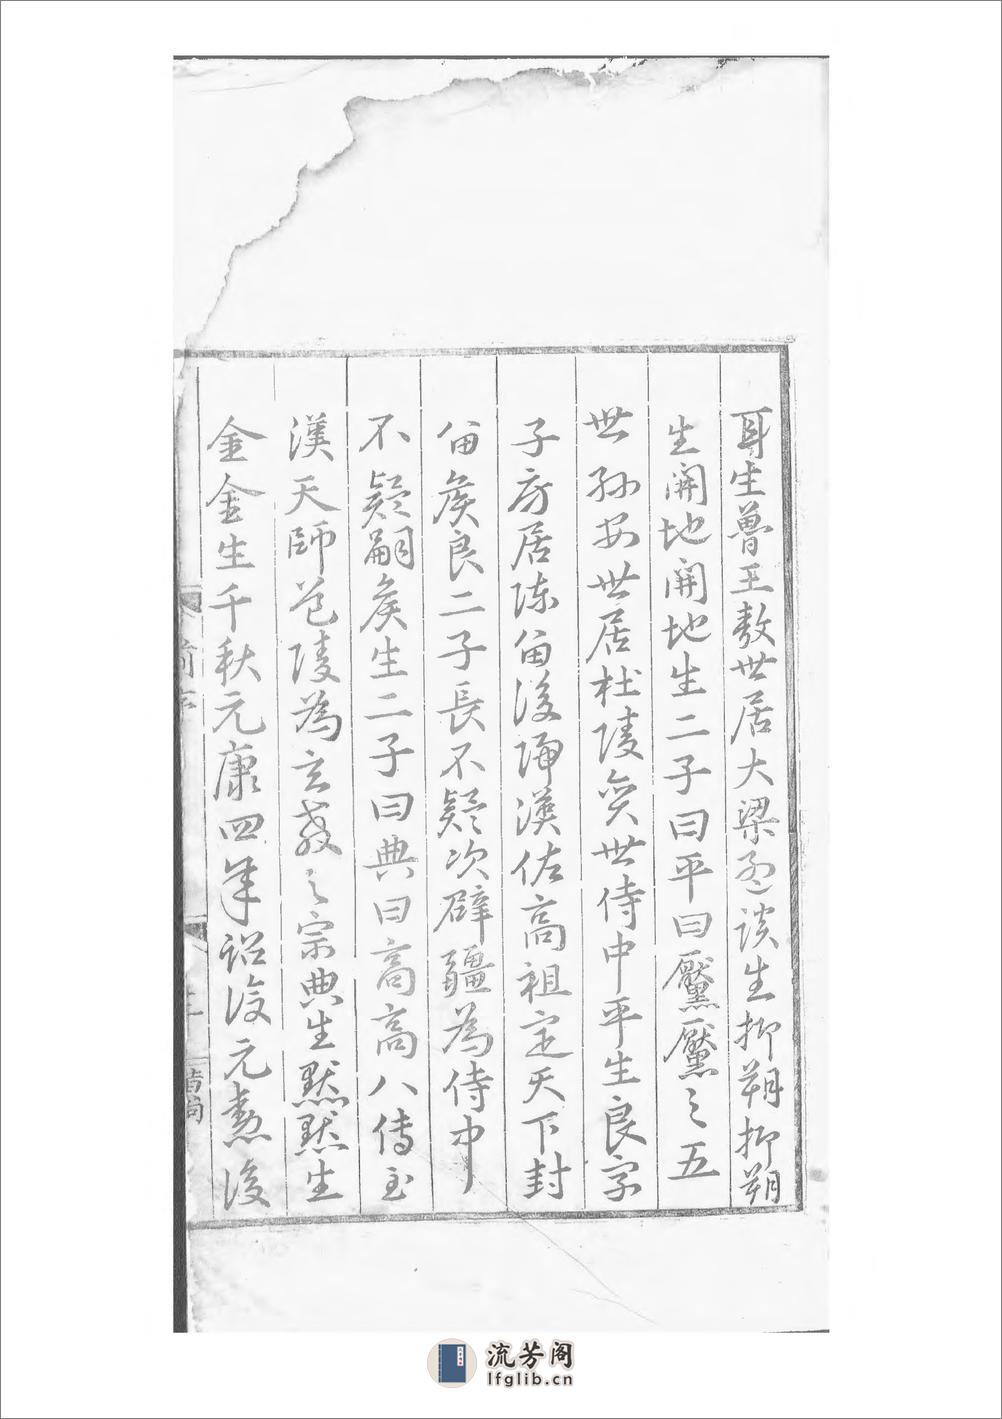 耳生魯王敖世居大梁孟談生抑朔抑朔
生開地開地生二子曰平曰黶黶之五
世孫安世居杜陵奕世侍中平生良字
子房居陳留後歸漢佐高祖定天下封
留矦良二子長不疑次辟疆為侍中
不疑嗣矦生二子曰典曰高高八傳至
漢天師道陵為玄教之宗典生默默生
金金生千秋元康四年詔復元勳後
流芳阁
lfglib.cn